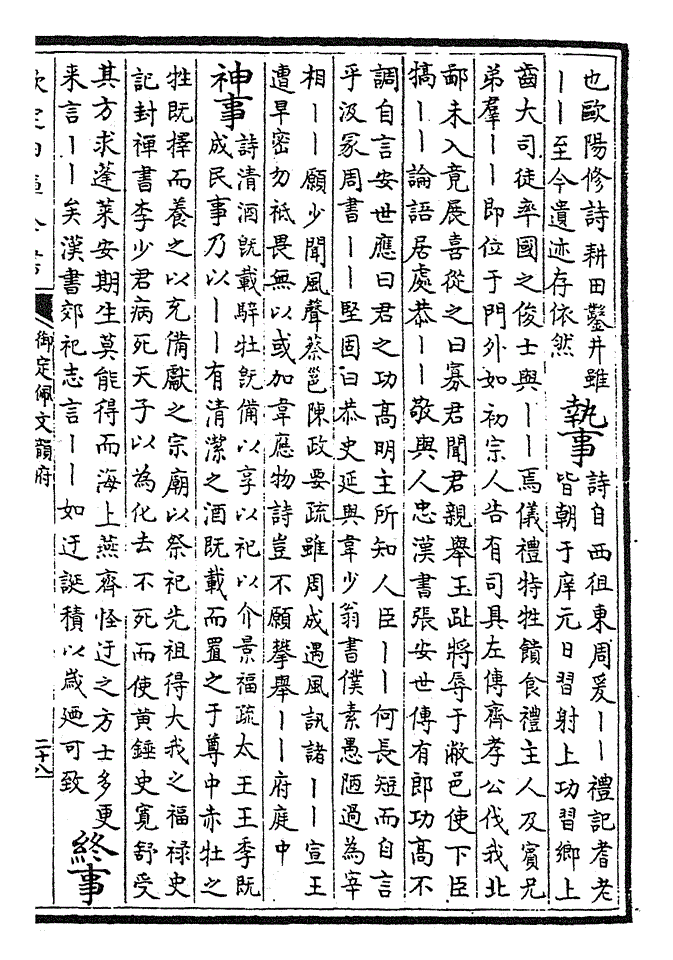 也歐陽修詩耕田鑿井雖
丨丨至今遺迹存依然
執事
詩自西徂東周爰丨丨禮記耆老
皆朝于庠元日習射上功習鄉上
齒大司徒率國之俊士與丨丨焉儀禮特牲饋食禮主人及賓兄
弟羣丨丨即位于門外如初宗人告有司具左傳齊孝公伐我北
鄙未入竟展喜從之曰寡君聞君親舉玉趾將辱于敝邑使下臣
犒丨丨論語居處恭丨丨敬與人忠漢書張安世傳有郎功高不
調自言安世應曰君之功高明主所知人臣丨丨何長短而自言
乎汲冢周書丨丨堅固曰恭史延與韋少翁書僕素愚陋過為宰
相丨丨願少聞風聲蔡邕陳政要疏雖周成遇風訊諸丨丨宣王
遭旱密勿祗畏無以或加韋應物詩豈不願攀舉丨丨府庭中
神事
詩清酒既載騂牡既備以享以祀以介景福疏太王王季既
成民事乃以丨丨有清潔之酒既載而置之于尊中赤牡之
牲既擇而養之以充備獻之宗廟以祭祀先祖得大我之福祿史
記封禪書李少君病死天子以為化去不死而使黃錘史寬舒受
其方求蓬萊安期生莫能得而海上燕齊怪迂之方士多更
来言丨丨矣漢書郊祀志言丨丨如迂誕積以歲廼可致
終事
欽定四庫全書
御定佩文韻府
二十八